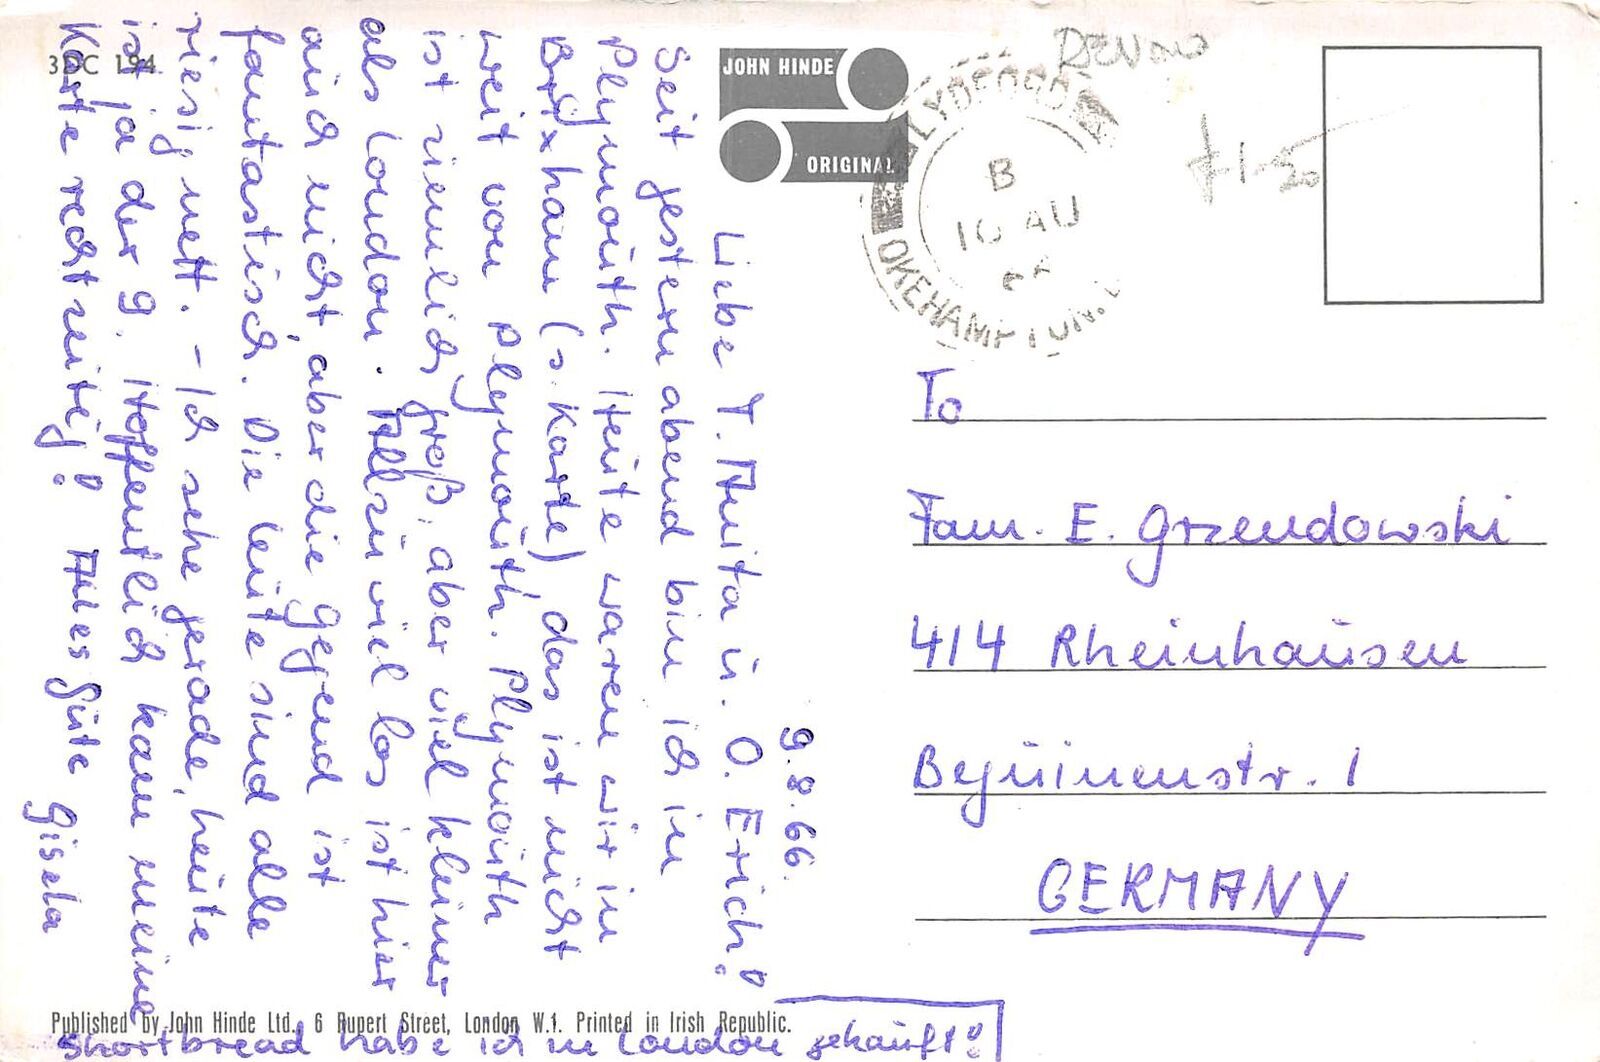 9.8.66.
Liebe T. Anita u. O. Erich!
Seit gestern abend bin ich in
Plymouth. Heute waren wir in
Brixham (s. Karte), das ist nicht
weit von Plymouth. Plymouth
ist ziemlich groß, aber viel kleiner
als London. Allzu viel los ist hier
auch nicht, aber die Gegend ist
fantastisch. Die Leute sind alle
riesig nett. - Ich sehe gerade, heute
ist ja der 9. Hoffentlich kam meine
Karte rechtzeitig! Alles Gute
Gisela
Shortbread habe ich in London gekauft!
3DC 194
JOHN HINDE
ORIGINAL
DEVON
OKEHAMPTON
B
10 AU
To
Fam. E. Grzendowski
414 Rheinhausen
Beguinenstr. 1
GERMANY
Published by John Hinde Ltd., 6 Rupert Street, London W.1. Printed in Irish Republic.